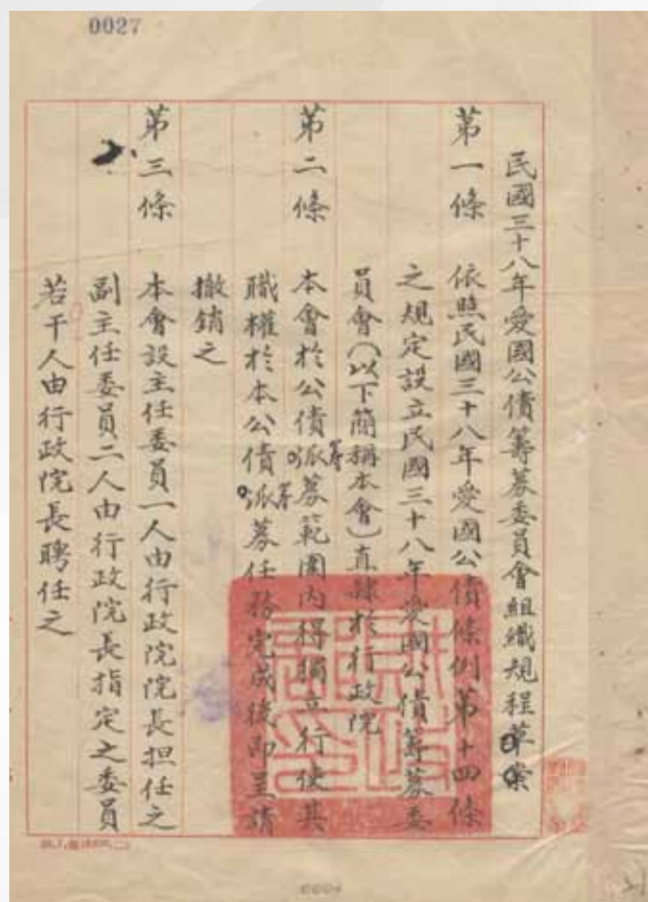 0027
民國三十八年愛國公債籌募委員會組織規程草案
第一條 依照民國三十八年愛國公債條例第十四條
之規定設立民國三十八年愛國公債籌募委
員會(以下簡稱本會)直隸於行政院
第二條 本會於公債籌派募範圍內得獨立行使其
職權於本公債籌派募任務完成後即呈請
撤銷之
第三條 本會設主任委員一人由行政院院長担任之
副主任委員二人由行政院長指定之委員
若干人由行政院長聘任之